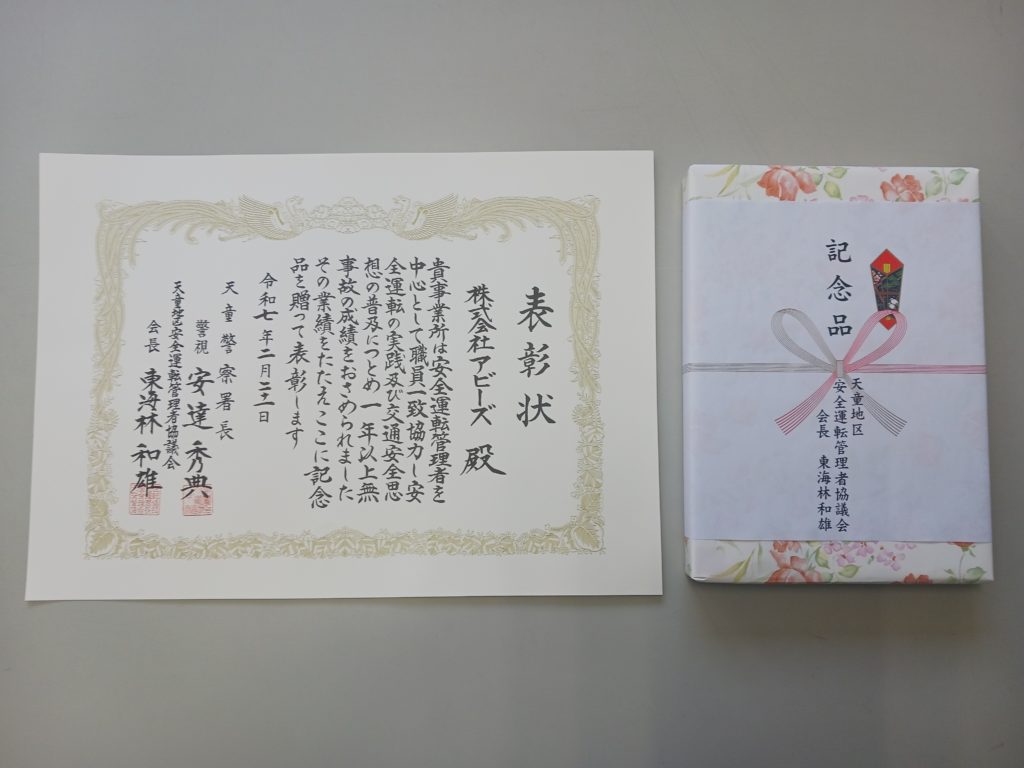 表彰状
株式会社アビーズ 殿
貴事業所は安全運転管理者を
中心として職員一致協力し安
全運転の実践及び交通安全思
想の普及につとめ一年以上無
事故の成績をおさめられました
その業績をたたえここに記念
品を贈って表彰します
令和七年二月二三日
天童警察署長
警視 安達秀典
天童地区安全運転管理者協議会
会長 東海林和雄
記念品
天童地区
安全運転管理者協議会
会長 東海林和雄